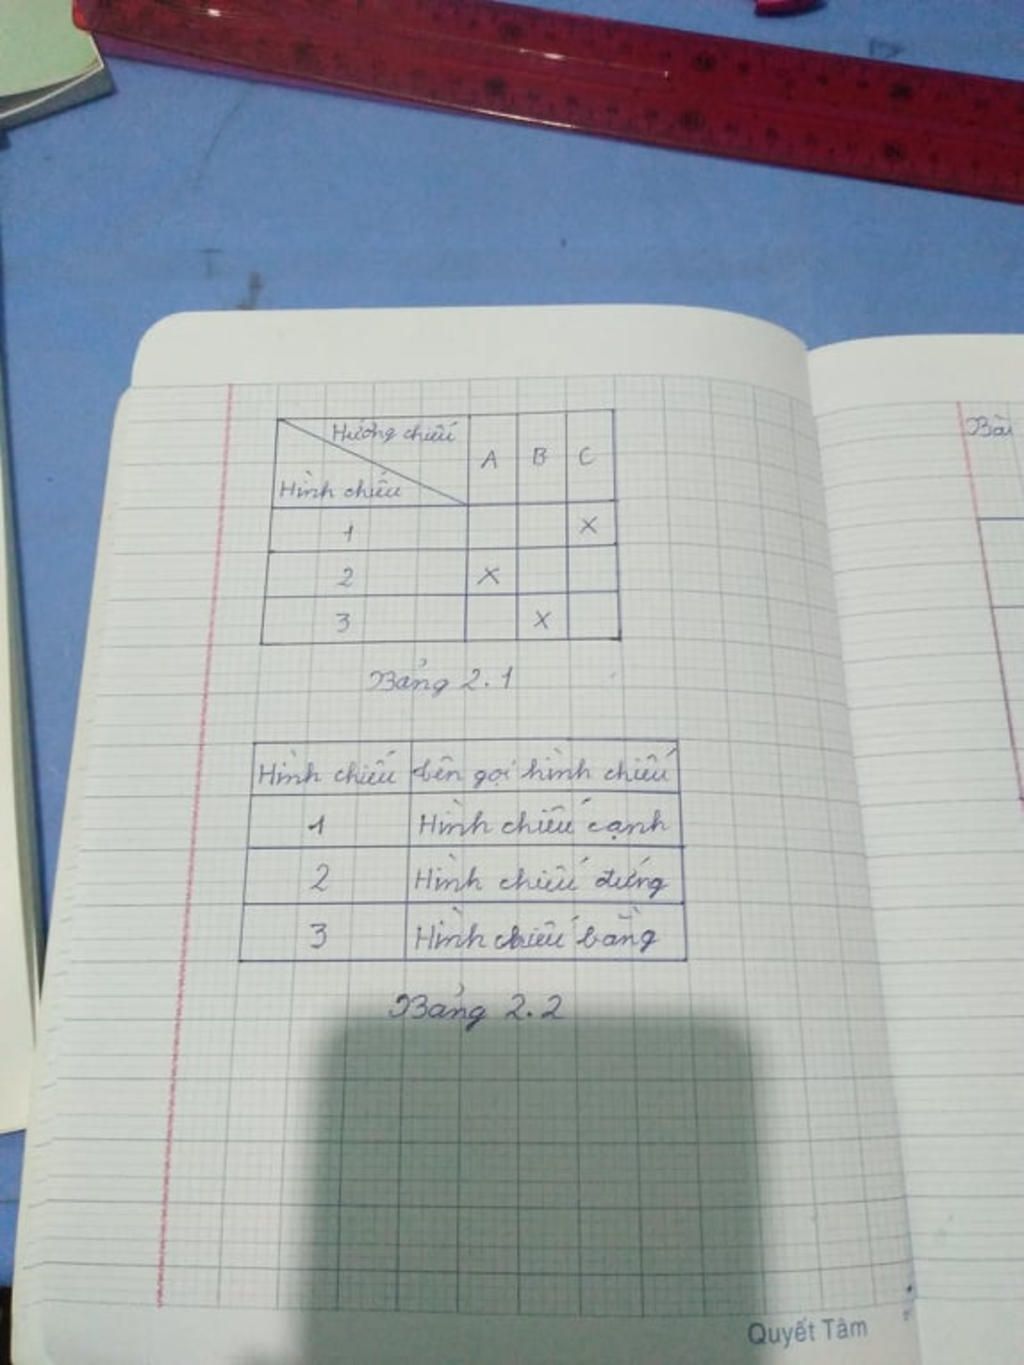 Hướng chiếu
A B C
Hình chiếu
1 X
2 X
3 X
Bảng 2.1
Hình chiếu tên gọi hình chiếu
1 Hình chiếu cạnh
2 Hình chiếu đứng
3 Hình chiếu bằng
Bảng 2.2
Quyết Tâm
Bài